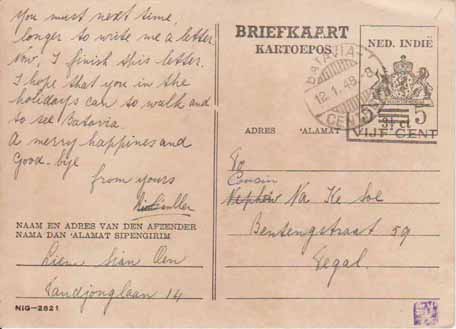 You must next time,
longer to write me a letter
now, I finish this letter.
I hope that you in the
holidays can to walk and
to see Batavia.
A merry happiness and
Good-bye
from yours
NAAM EN ADRES VAN DEN AFZENDER
NAMA DAN 'ALAMAT SIPENGIRIM
Liem Sian Oen
Tandjonglaan 14
NIG-2821
BRIEFKAART
KARTOEPOS
NED. INDIË
BATAVIA
12.1.48
CENTRUM
5 5
VIJF CENT
ADRES 'ALAMAT
To
Cousin
Nephew Na Ke Soe
Bentengstraat 59
Tegal.